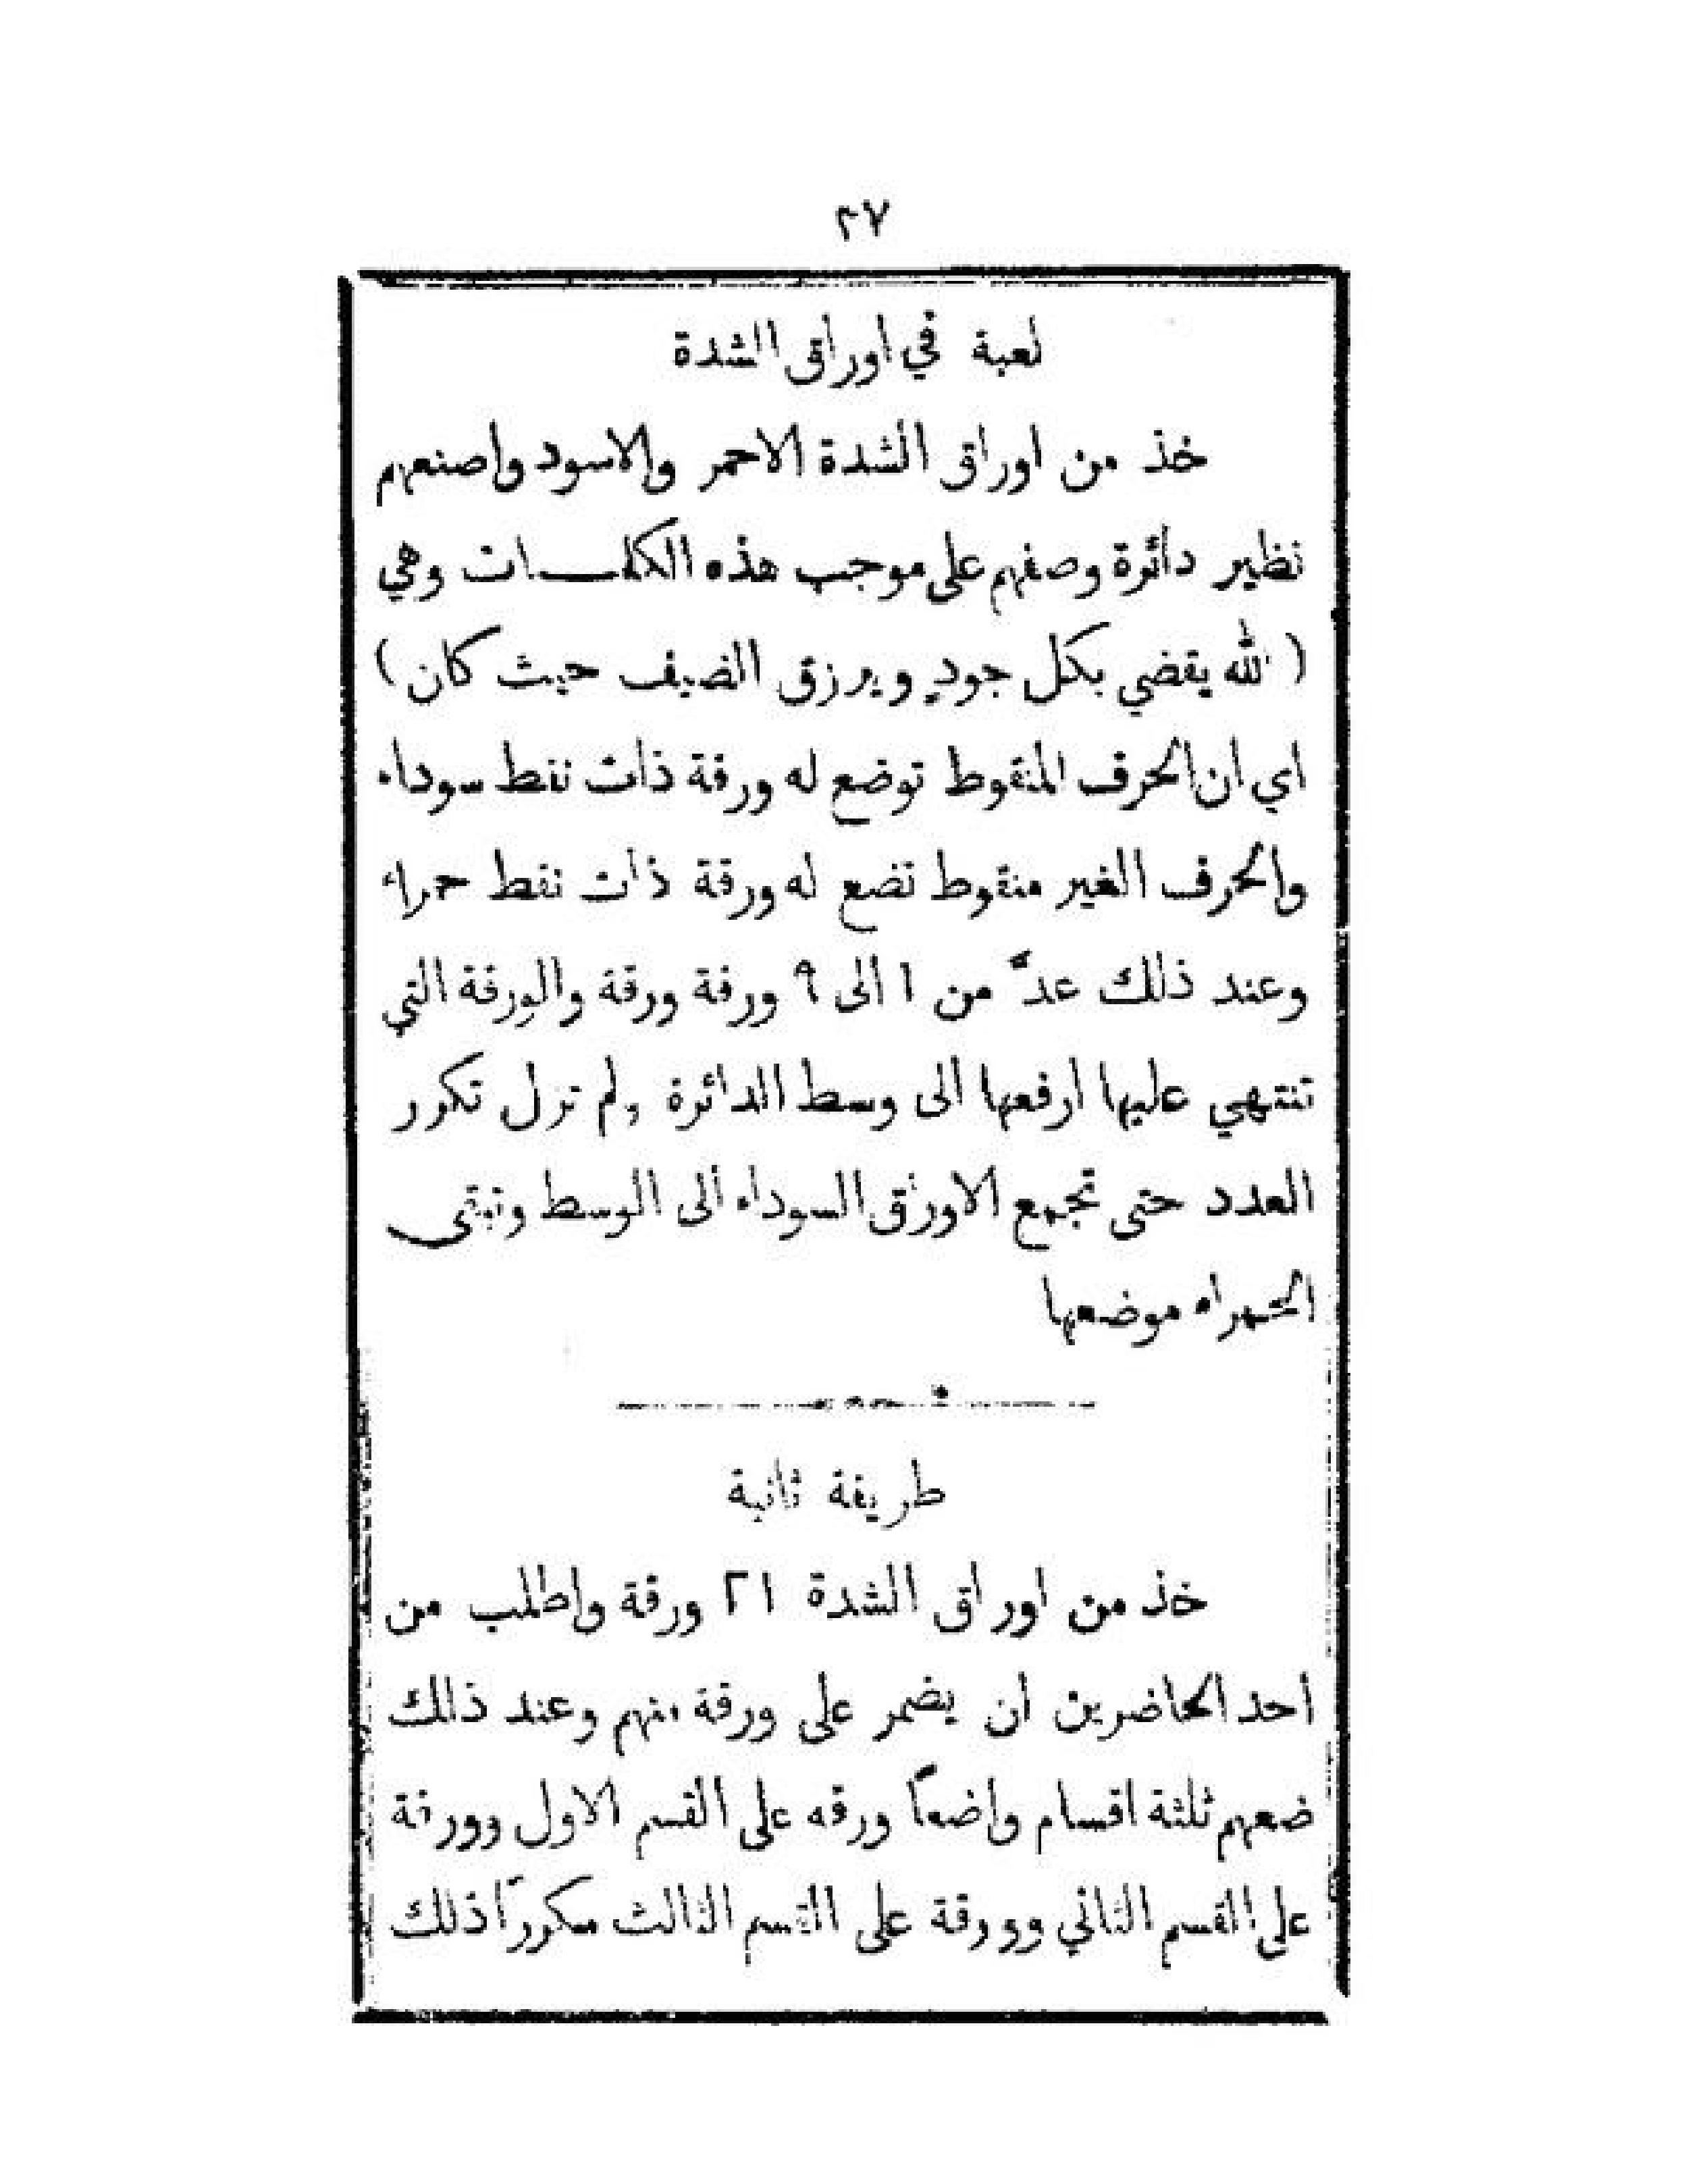 ٣٧
لعبة في اوراق الشدة
خذ من اوراق الشدة الاحمر والاسود واصنعهم
نظير دائرة وصفهم على موجب هذه الكلمات وهي
( الله يقضي بكل جودٍ ويرزق الضيف حيث كان)
اي ان الحرف المنقوط توضع له ورقة ذات نقط سوداء
والحرف الغير منقوط تضع له ورقة ذات نقط حمراء
وعند ذلك عدّ من ١ الى ٩ ورقة ورقة والورقة التي
تنتهي عليها ارفعها الى وسط الدائرة ولم تزل تكرر
العدد حتى تجمع الاوراق السوداء الى الوسط وتبقى
الحمراء موضعها
طريقة ثانية
خذ من اوراق الشدة ٢١ ورقة واطلب من
احد الحاضرين ان يضمر على ورقة منهم وعند ذلك
ضعهم ثلثة اقسام واضعاً ورقه على القسم الاول وورقة
على القسم الثاني وورقة على القسم الثالث مكرراً ذلك